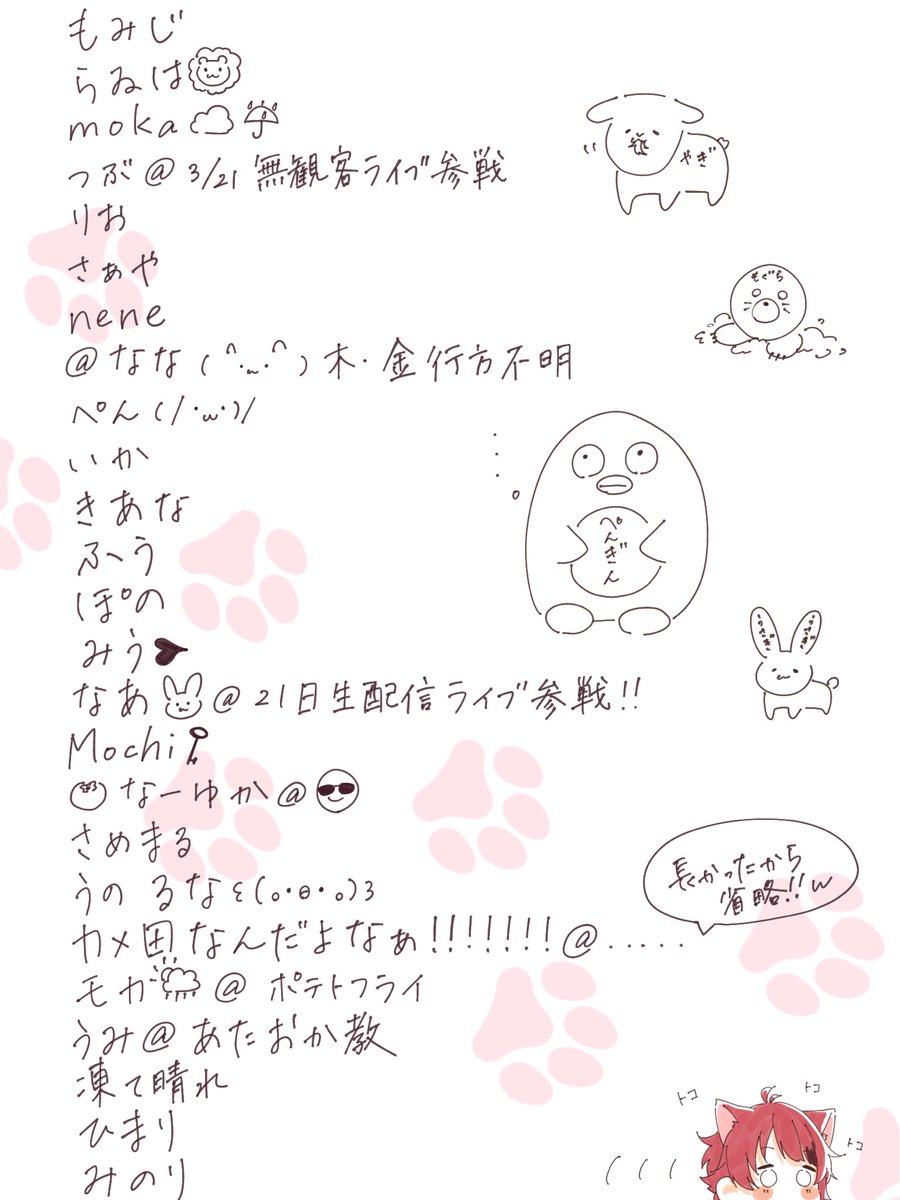 もみじ
らゐは
moka
つぶ@3/21無観客ライブ参戦
やぎ
りお
さぁや
もぐら
nene
@なな(^・ω・^)木・金行方不明
ぺん(/・ω・)/
いか
きあな
ぺんぎん
ふう
ぽの
みう
うさぎ
うさぎ
なあ@21日生配信ライブ参戦!!
Mochi
なーゆか@
さめまる
うの るなε(๐・θ・๐)з
長かったから
省略!!w
カメ田なんだよなぁ!!!!!!!@.....
モカ@ポテトフライ
うみ@あたおか教
凍て晴れ
ひまり
みのり
トコ
トコ
トコ